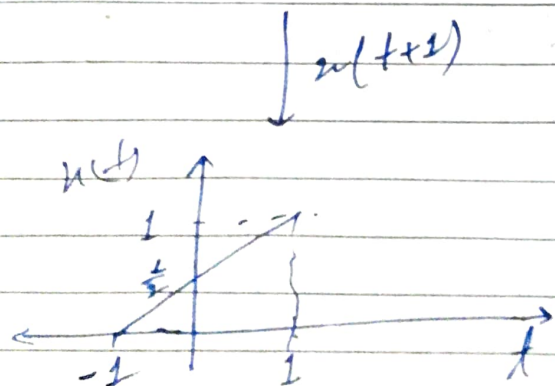 x(t+1)
x(t)
1
1/2
-1 1 t